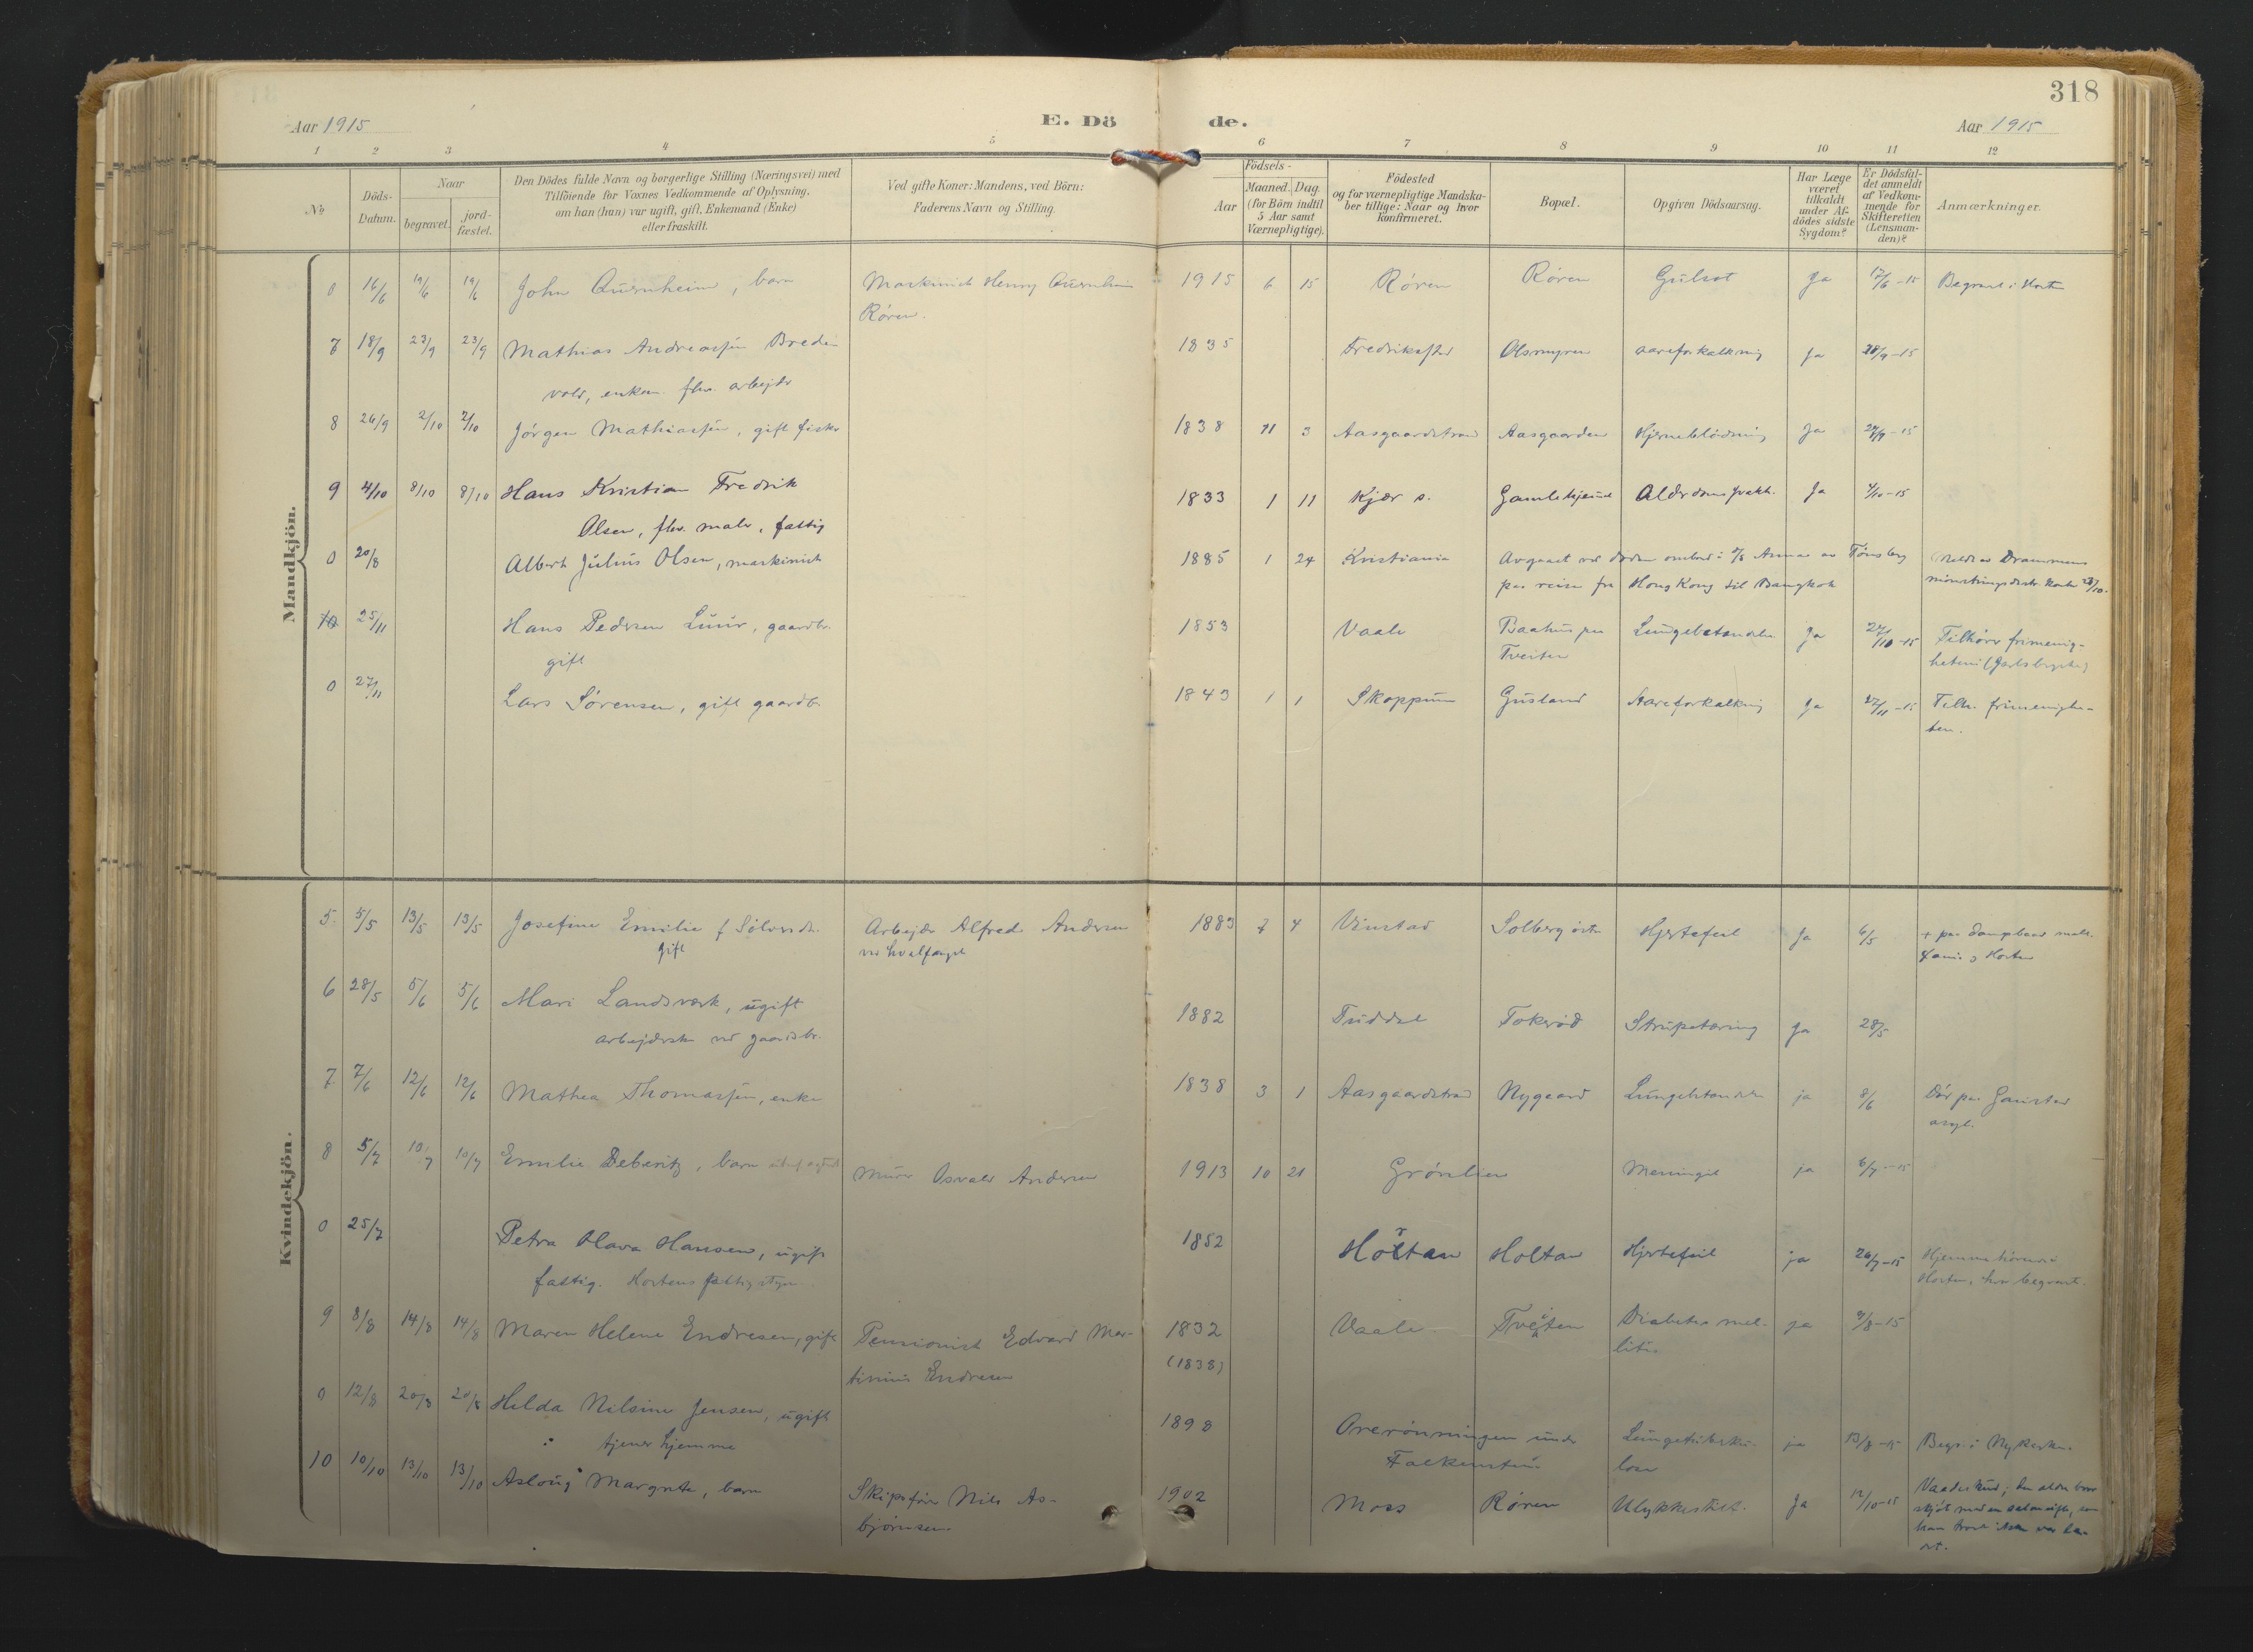 318
Aar 1915
E. Dö de.
Aar 1915
1 2 3 4 5 6 7 8 9 10 11 12
No
Döds-
Datum.
Naar
begravet.
jord-
fæstet.
Den Dödes fulde Navn og borgerlige Stilling (Næringsvei) med
Tilföiende for Voxnes Vedkommende af Oplysning.
om han (hun) var ugift, gift, Enkemand (Enke)
eller fraskilt.
Ved gifte Koner: Mandens, ved Börn:
Faderens Navn og Stilling.
Födsels-
Aar
Maaned. Dag.
(for Börn indtil
5 Aar samt
Værnepligtige).
Födested
og for værnepligtige Mandska-
ber tillige: Naar og hvor
Konfirmeret.
Bopæl.
Opgiven Dödsaarsag.
Har Læge
været
tilkaldt
under Af-
dödes sidste
Sygdom?
Er Dödsfal-
det anmeldt
af Vedkom-
mende for
Skifteretten
(Lensman-
den)?
Anmærkninger.
Mandkjön.
0 16/6 19/6 19/6 John Quernheim, barn Maskinist Henry Quernheim 1915 6 15 Røren Røren Gulsot Ja 17/6-15 Begravet i Horten
Røren.
7 18/9 23/9 23/9 Mathias Andreassen Breden 1835 Fredrikssted Olsmyren aareforkalkning Ja 28/9-15
vold, enkem. fhv. arbejder
8 26/9 2/10 2/10 Jörgen Mathiassen, gift fisker 1838 11 3 Aasgaardstrand Aasgaarden Hjerneblödning Ja 27/9-15
9 4/10 8/10 8/10 Hans Kristian Fredrik 1833 1 11 Kjær s. Gamlehjemmet Alderdomssvakh. Ja 4/10-15
Olsen, fhv. maler, fattig
0 20/8 Albert Julius Olsen, maskinist 1885 1 24 Kristiania Avgaaet ved döden ombord i S/S Annam av Tønsberg Meldt av Drammens
paa reise fra Hong Kong til Bangkok mönstringsdistr.
10 25/11 Hans Pedersen Luur, gaardbr. 1853 Vaale Baahus paa Lungebetændelse Ja 27/10-15 Tilhører frimenig-
gift Tveiten heten (Jarlsbergske)
0 27/11 Lars Sørensen, gift gaardbr. 1843 1 1 Skoppum Gusland Aareforkalkning Ja 27/11-15 Tilh. frimenighe-
ten.
Kvindekjön.
5 5/5 13/5 13/5 Josefine Emilie f. Sölversdtr. Arbejder Alfred Andersen 1883 7 4 Vinstad Solberg östre Hjertefeil Ja 6/5
gift ved hvalfangst
6 28/5 5/6 5/6 Mari Landsverk, ugift 1882 Tuddal Tokerød Strupetæring Ja 28/5
arbejderske ved gaardsbr.
7 7/6 12/6 12/6 Mathea Thomassen, enke 1838 3 1 Aasgaardstrand Nygaard Lungebetændelse ja 8/6 Död paa Gaustad
asyl.
8 5/7 10/7 10/7 Emilie Deberitz, barn Murer Osvald Andersen 1913 10 21 Grønlien Meningit ja 6/7-15
0 25/7 Petra Olava Hansen, ugift 1852 Holtan Holtan Hjertefeil ja 26/7-15 Hjemmehörende i
fattig. Hortens fattigstyre Horten, hvor begravet.
9 8/8 14/8 14/8 Maren Helene Endresen, gift Pensionist Edvard Mar- 1832 Vaale Tveiten Diabetes mel- ja 9/8-15
tinius Endresen (1838) litus
0 12/8 20/8 20/8 Hilda Nilsine Jensen, ugift 1898 Orerönningen under Lungetuberku- ja 13/8-15 Begr. i Nykirke.
tjener hjemme Falkensten lose
10 10/10 13/10 13/10 Aslaug Margrete, barn Skipsfører Nils As- 1902 Moss Røren Ulykkestilf. Ja 12/10-15 Vaadeskud; den eldre bror
bjørnsen skjöt med en salonrifle, som
han trodde ikke var la-
det.